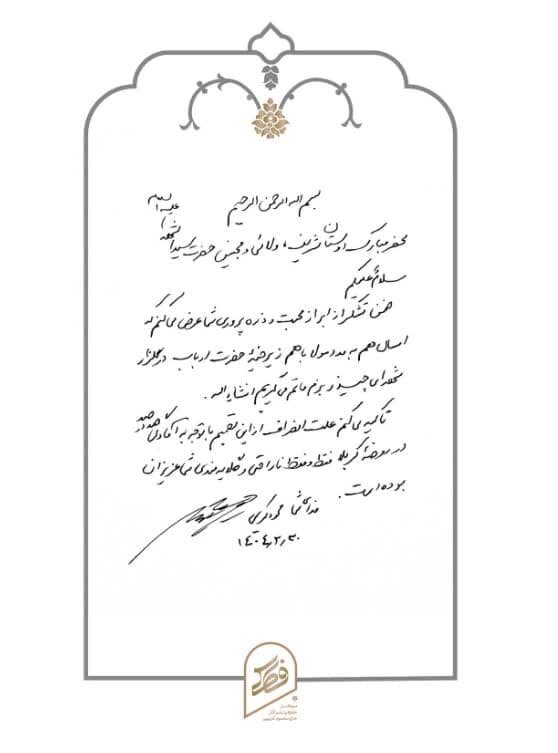 بسم اله الرحمن الرحیم
محضر مبارک دوستان شریف، ولائی و محبین حضرت سیدالشهداء علیه السلام
سلام علیکم
ضمن تشکر از ابراز محبت و ذره پروری شما عرض می‌کنم که
امسال هم به مدد مولا با هم زیر خیمهٔ حضرت ارباب در گلزار
شهدای چیذر بزم ماتم می‌گیریم انشاءاله.
تأکید می‌کنم علت انصراف از این تصمیم با توجه به آمادگی صددرصد
در روضهٔ کربلا فقط و فقط ناراحتی و گلایه‌مندی شما عزیزان
بوده است.
فدای شما محمود کریمی
۱۴۰۴٫۳٫۳۰